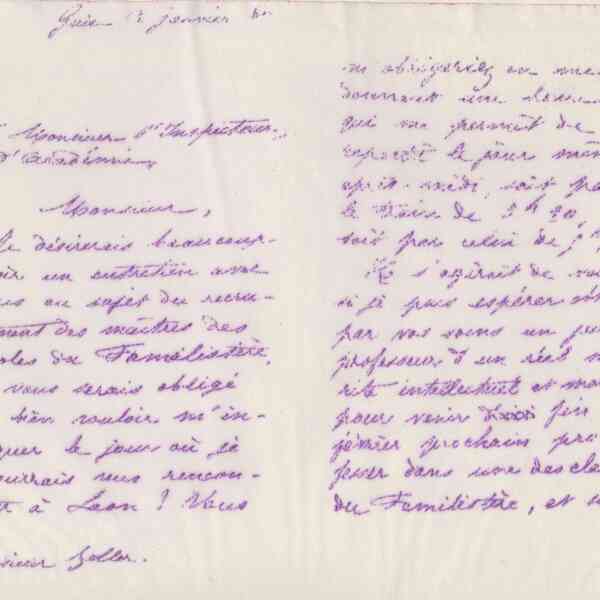 Guise janvier
Monsieur l'Inspecteur
d'académie,
Monsieur,
Je désirerais beaucoup
oir un entretien avec
us au sujet du recru-
ement des maîtres des
oles du Familistère.
vous serais obligé
bien vouloir m'in-
quer le jour où je
ourrais vous rencon-
à Laon ? Vous
sieur
m'obligeriez en me
donnant une heure
qui me permit de
repartir le jour mêm
après-midi, soit pa
le train de 2h 20,
soit par celui de
Il s'agirait de
si je puis espérer
par vos soins un
professeur d'un réel
rite intellectuel et mo
pour venir fin
février prochain pro
fesser dans une des cla
du Familistère, et